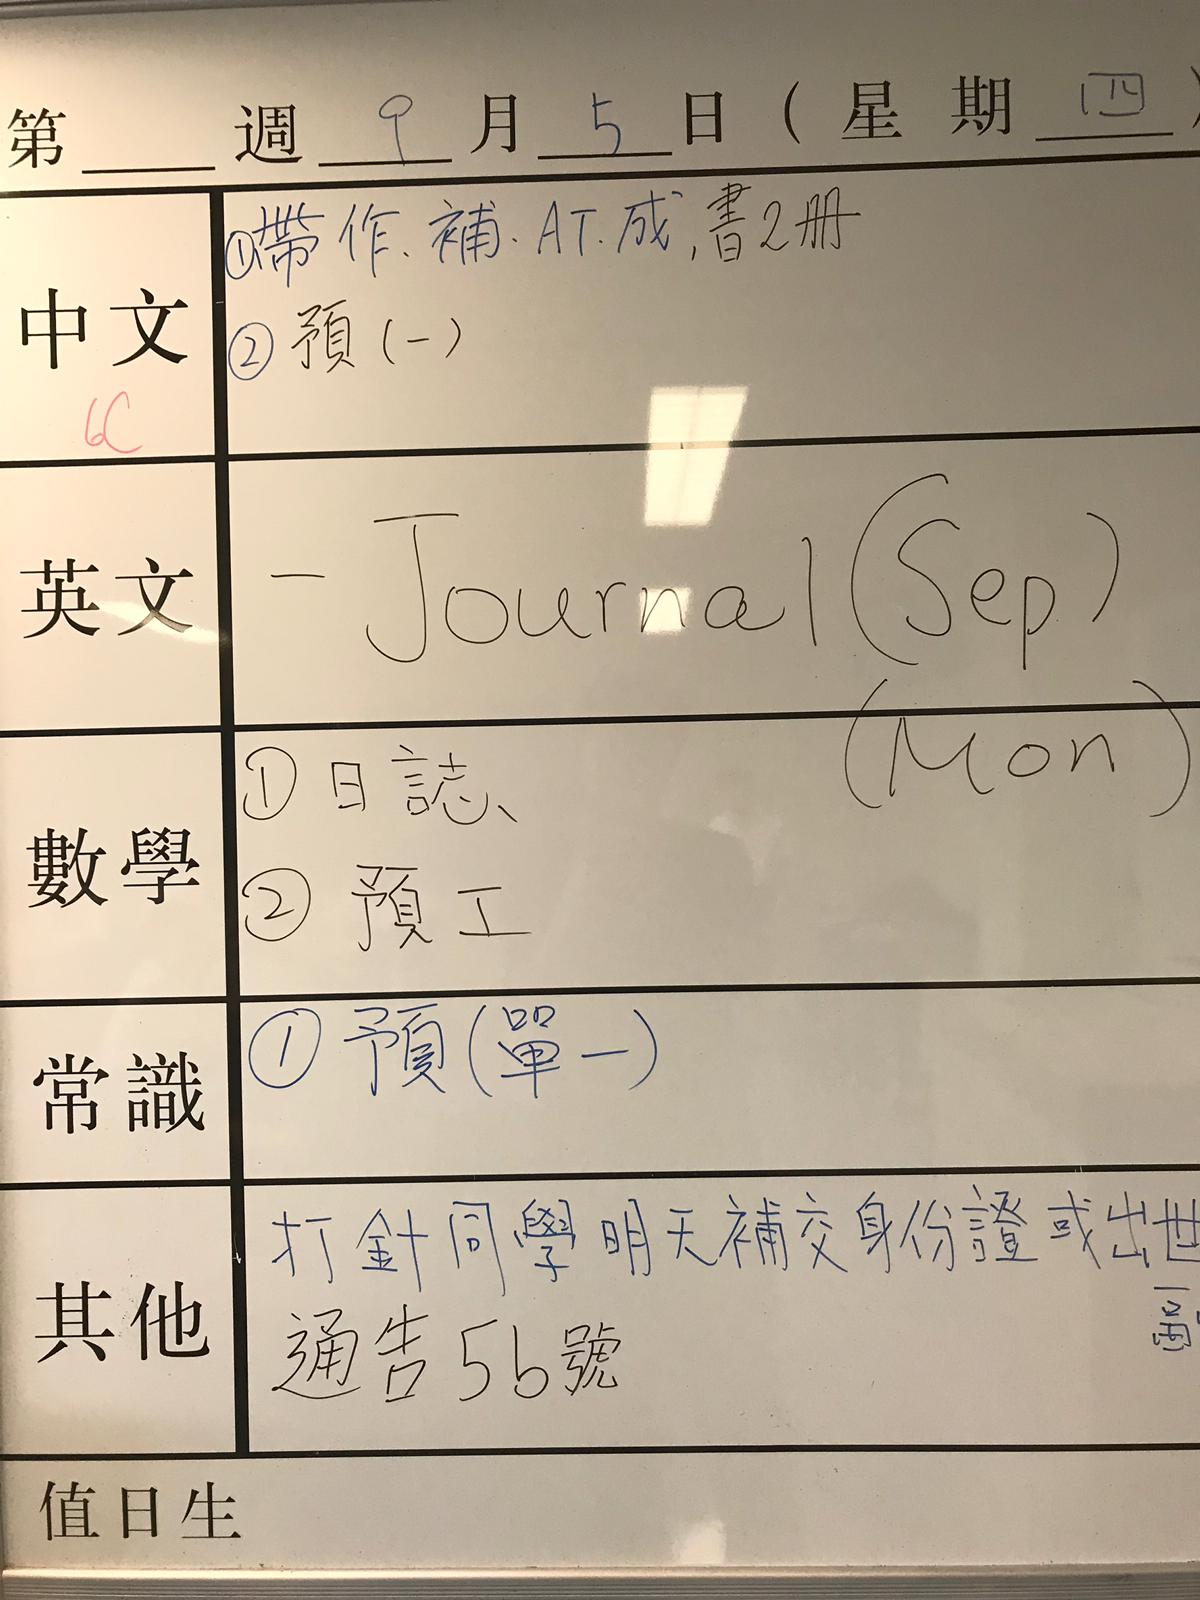 第 週 9 月 5 日 ( 星 期 四 )
中文
6C
①帶作、補．AT．成，書2冊
② 預 (一)
英文
- Journal (Sep)
(Mon)
數學
① 日誌、
② 預工
常識
① 預(單一)
其他
打針同學明天補交身份證或出世
通告5b號
值日生